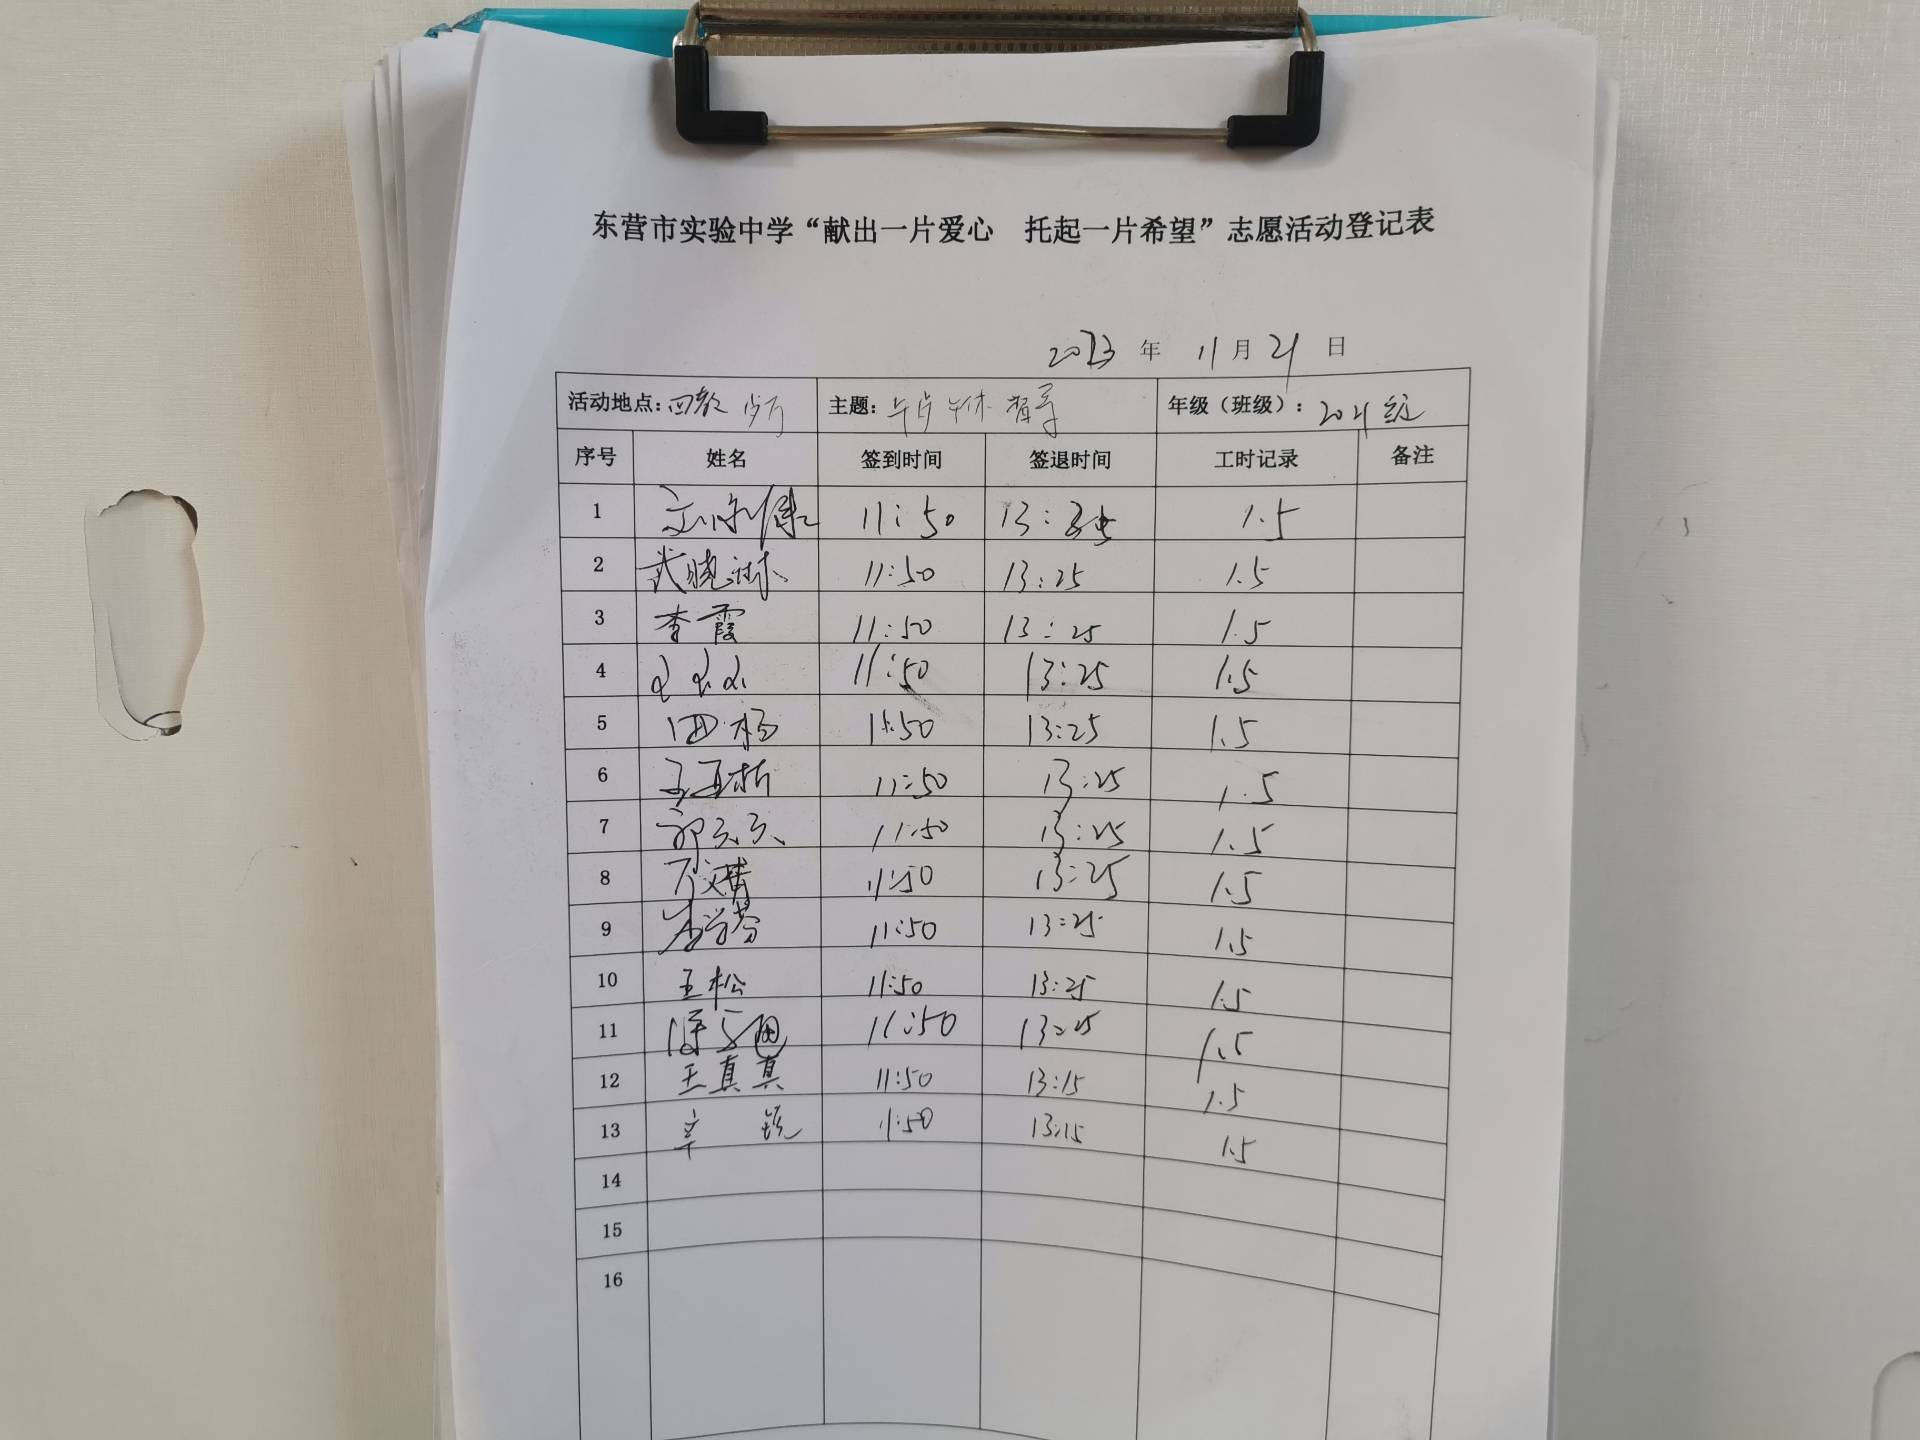 东营市实验中学“献出一片爱心 托起一片希望”志愿活动登记表
2023 年 11 月 21 日
活动地点：四教 主题： 年级（班级）：2021级
序号 姓名 签到时间 签退时间 工时记录 备注
1 11:50 13:25 1.5
2 武晓琳 11:50 13:25 1.5
3 李霞 11:50 13:25 1.5
4 11:50 13:25 1.5
5 田杨 11:50 13:25 1.5
6 11:50 13:25 1.5
7 11:50 13:25 1.5
8 11:50 13:25 1.5
9 李学芬 11:50 13:25 1.5
10 王松 11:50 13:25 1.5
11 11:50 13:25 1.5
12 王真真 11:50 13:15 1.5
13 辛锐 11:50 13:15 1.5
14
15
16